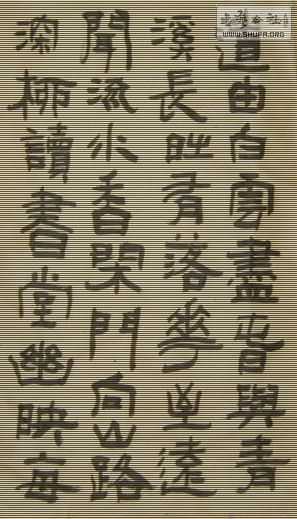 道由白雲盡旾與青
溪長時有落華至遠
聞流水香閑門向山路
深柳讀書堂幽映每
書法公社
WWW.SHUFA.ORG